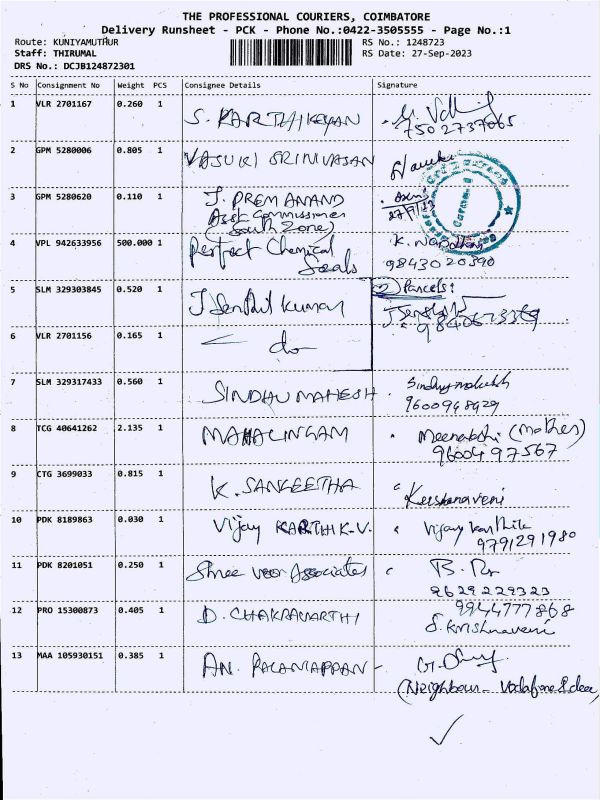 THE PROFESSIONAL COURIERS, COIMBATORE
Delivery Runsheet - PCK - Phone No.:0422-3505555 - Page No.:1
Route: KUNIYAMUTHUR RS No.: 1248723
Staff: THIRUMAL RS Date: 27-Sep-2023
DRS No.: DCJB124872301
S No Consignment No Weight PCS Consignee Details Signature
1 VLR 2701167 0.260 1 S. KARTHIKEYAN
7502737065
2 GPM 5280006 0.805 1 VASUKI SRINIVASAN
3 GPM 5280620 0.110 1 J. PREM ANAND
Asst Commissioner
(South Zone)
4 VPL 942633956 500.000 1 Perfect Chemical
Seals
K.
9843020390
5 SLM 329303845 0.520 1 J Senthil Kumar
2) Parcels:
6 VLR 2701156 0.165 1 do
7 SLM 329317433 0.560 1 SINDHU MAHESH
Sindhu mahesh
9600948929
8 TCG 40641262 2.135 1 MAHALINGAM
Meenakshi (mother)
9600497567
9 CTG 3699033 0.815 1 K. SANGEETHA
Krishnaveni
10 PDK 8189863 0.030 1 Vijay KARTHIK.V. Vijay Karthik
9791291980
11 PDK 8201051 0.250 1 Shree Associates
9629229323
12 PRO 15300873 0.405 1 D. CHAKRAVARTHI
9944777868
S. Krishnaveni
13 MAA 105930151 0.385 1 AN. PALANIAPPAN -
(Neighbour - Vodafone Idea)